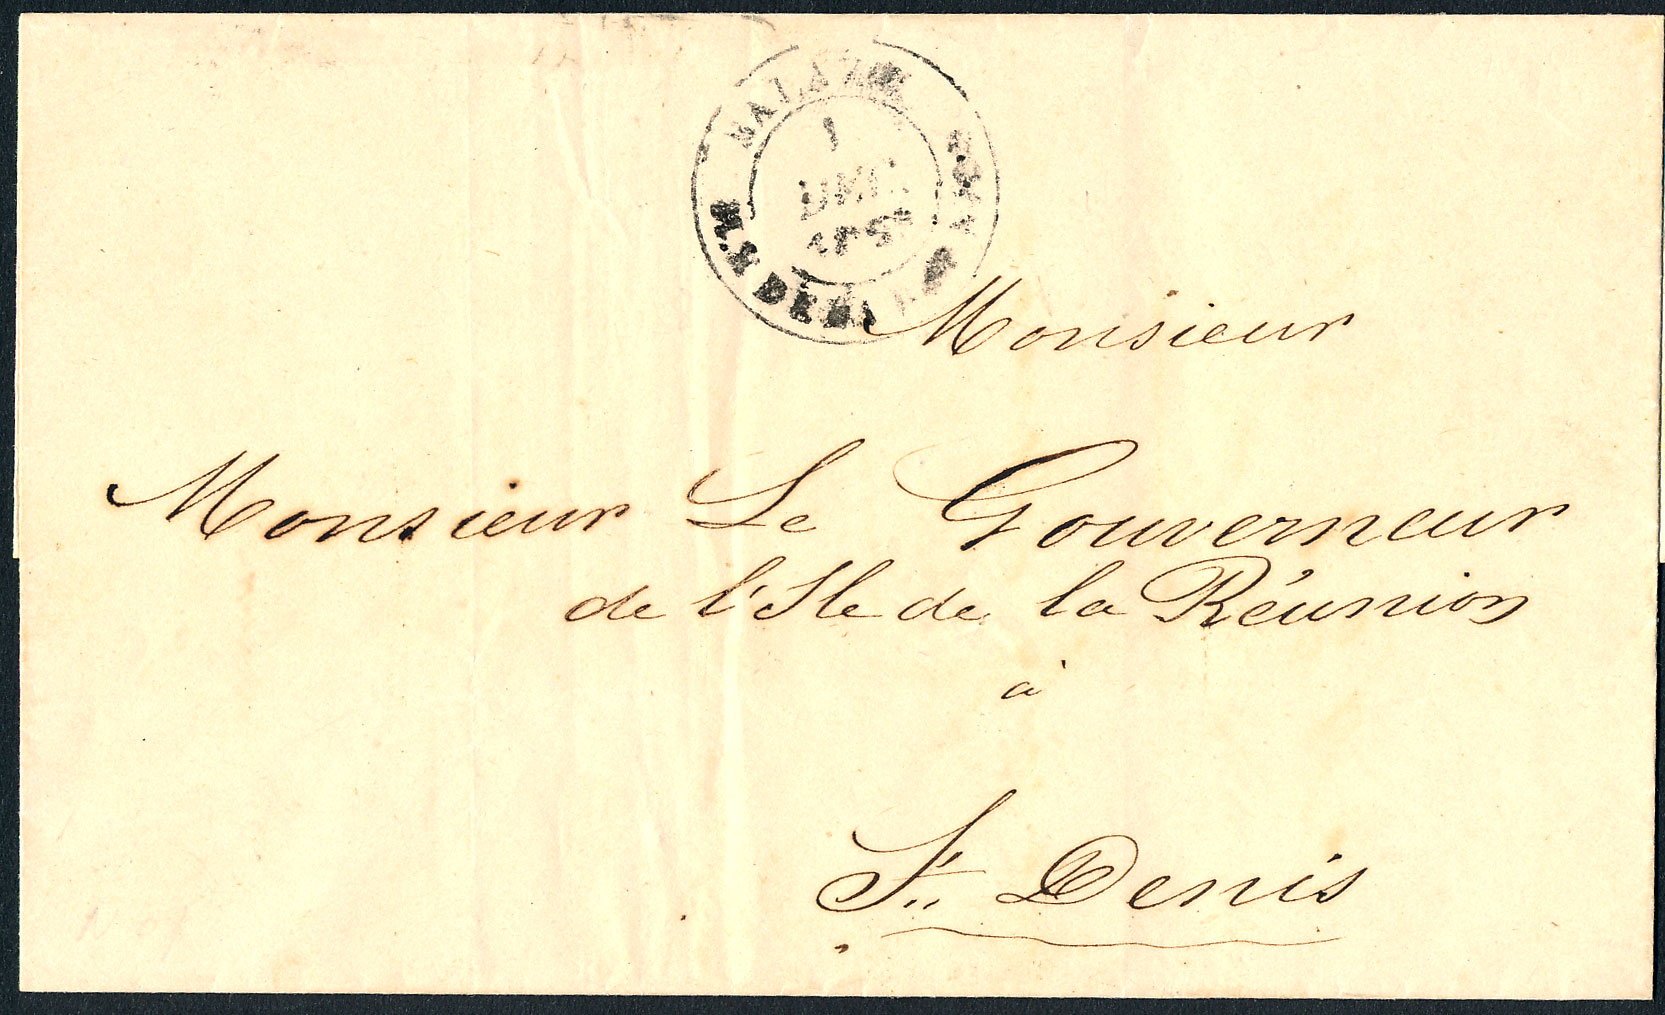 SALAZIE
1
DEC
Monsieur
Monsieur Le Gouverneur
de l'Ile de la Réunion
à
St. Denis